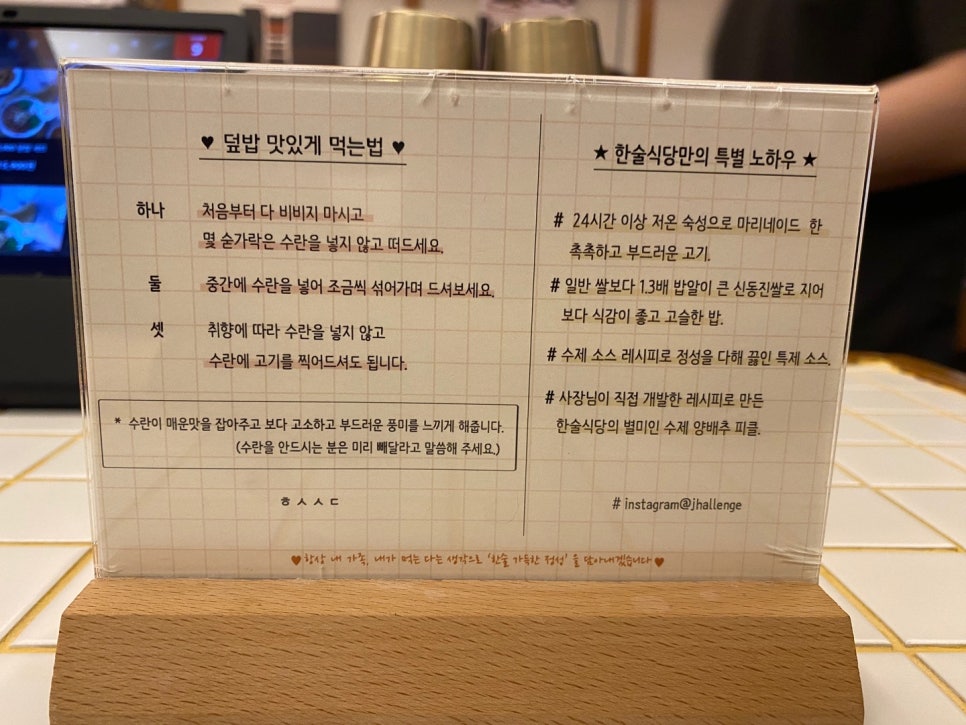 ♥ 덮밥 맛있게 먹는법 ♥
하나 처음부터 다 비비지 마시고
몇 숟가락은 수란을 넣지 않고 떠드세요.
둘 중간에 수란을 넣어 조금씩 섞어가며 드셔보세요.
셋 취향에 따라 수란을 넣지 않고
수란에 고기를 찍어드셔도 됩니다.
* 수란이 매운맛을 잡아주고 보다 고소하고 부드러운 풍미를 느끼게 해줍니다.
(수란을 안드시는 분은 미리 빼달라고 말씀해 주세요.)
ㅎㅅㅅㄷ
★ 한술식당만의 특별 노하우 ★
# 24시간 이상 저온 숙성으로 마리네이드 한
촉촉하고 부드러운 고기.
# 일반 쌀보다 1.3배 밥알이 큰 신동진쌀로 지어
보다 식감이 좋고 고슬한 밥.
# 수제 소스 레시피로 정성을 다해 끓인 특제 소스.
# 사장님이 직접 개발한 레시피로 만든
한술식당의 별미인 수제 양배추 피클.
# instagram@jhallenge
♥항상 내 가족, 내가 먹는 다는 생각으로 '한술 가득한 정성' 을 담아내겠습니다♥